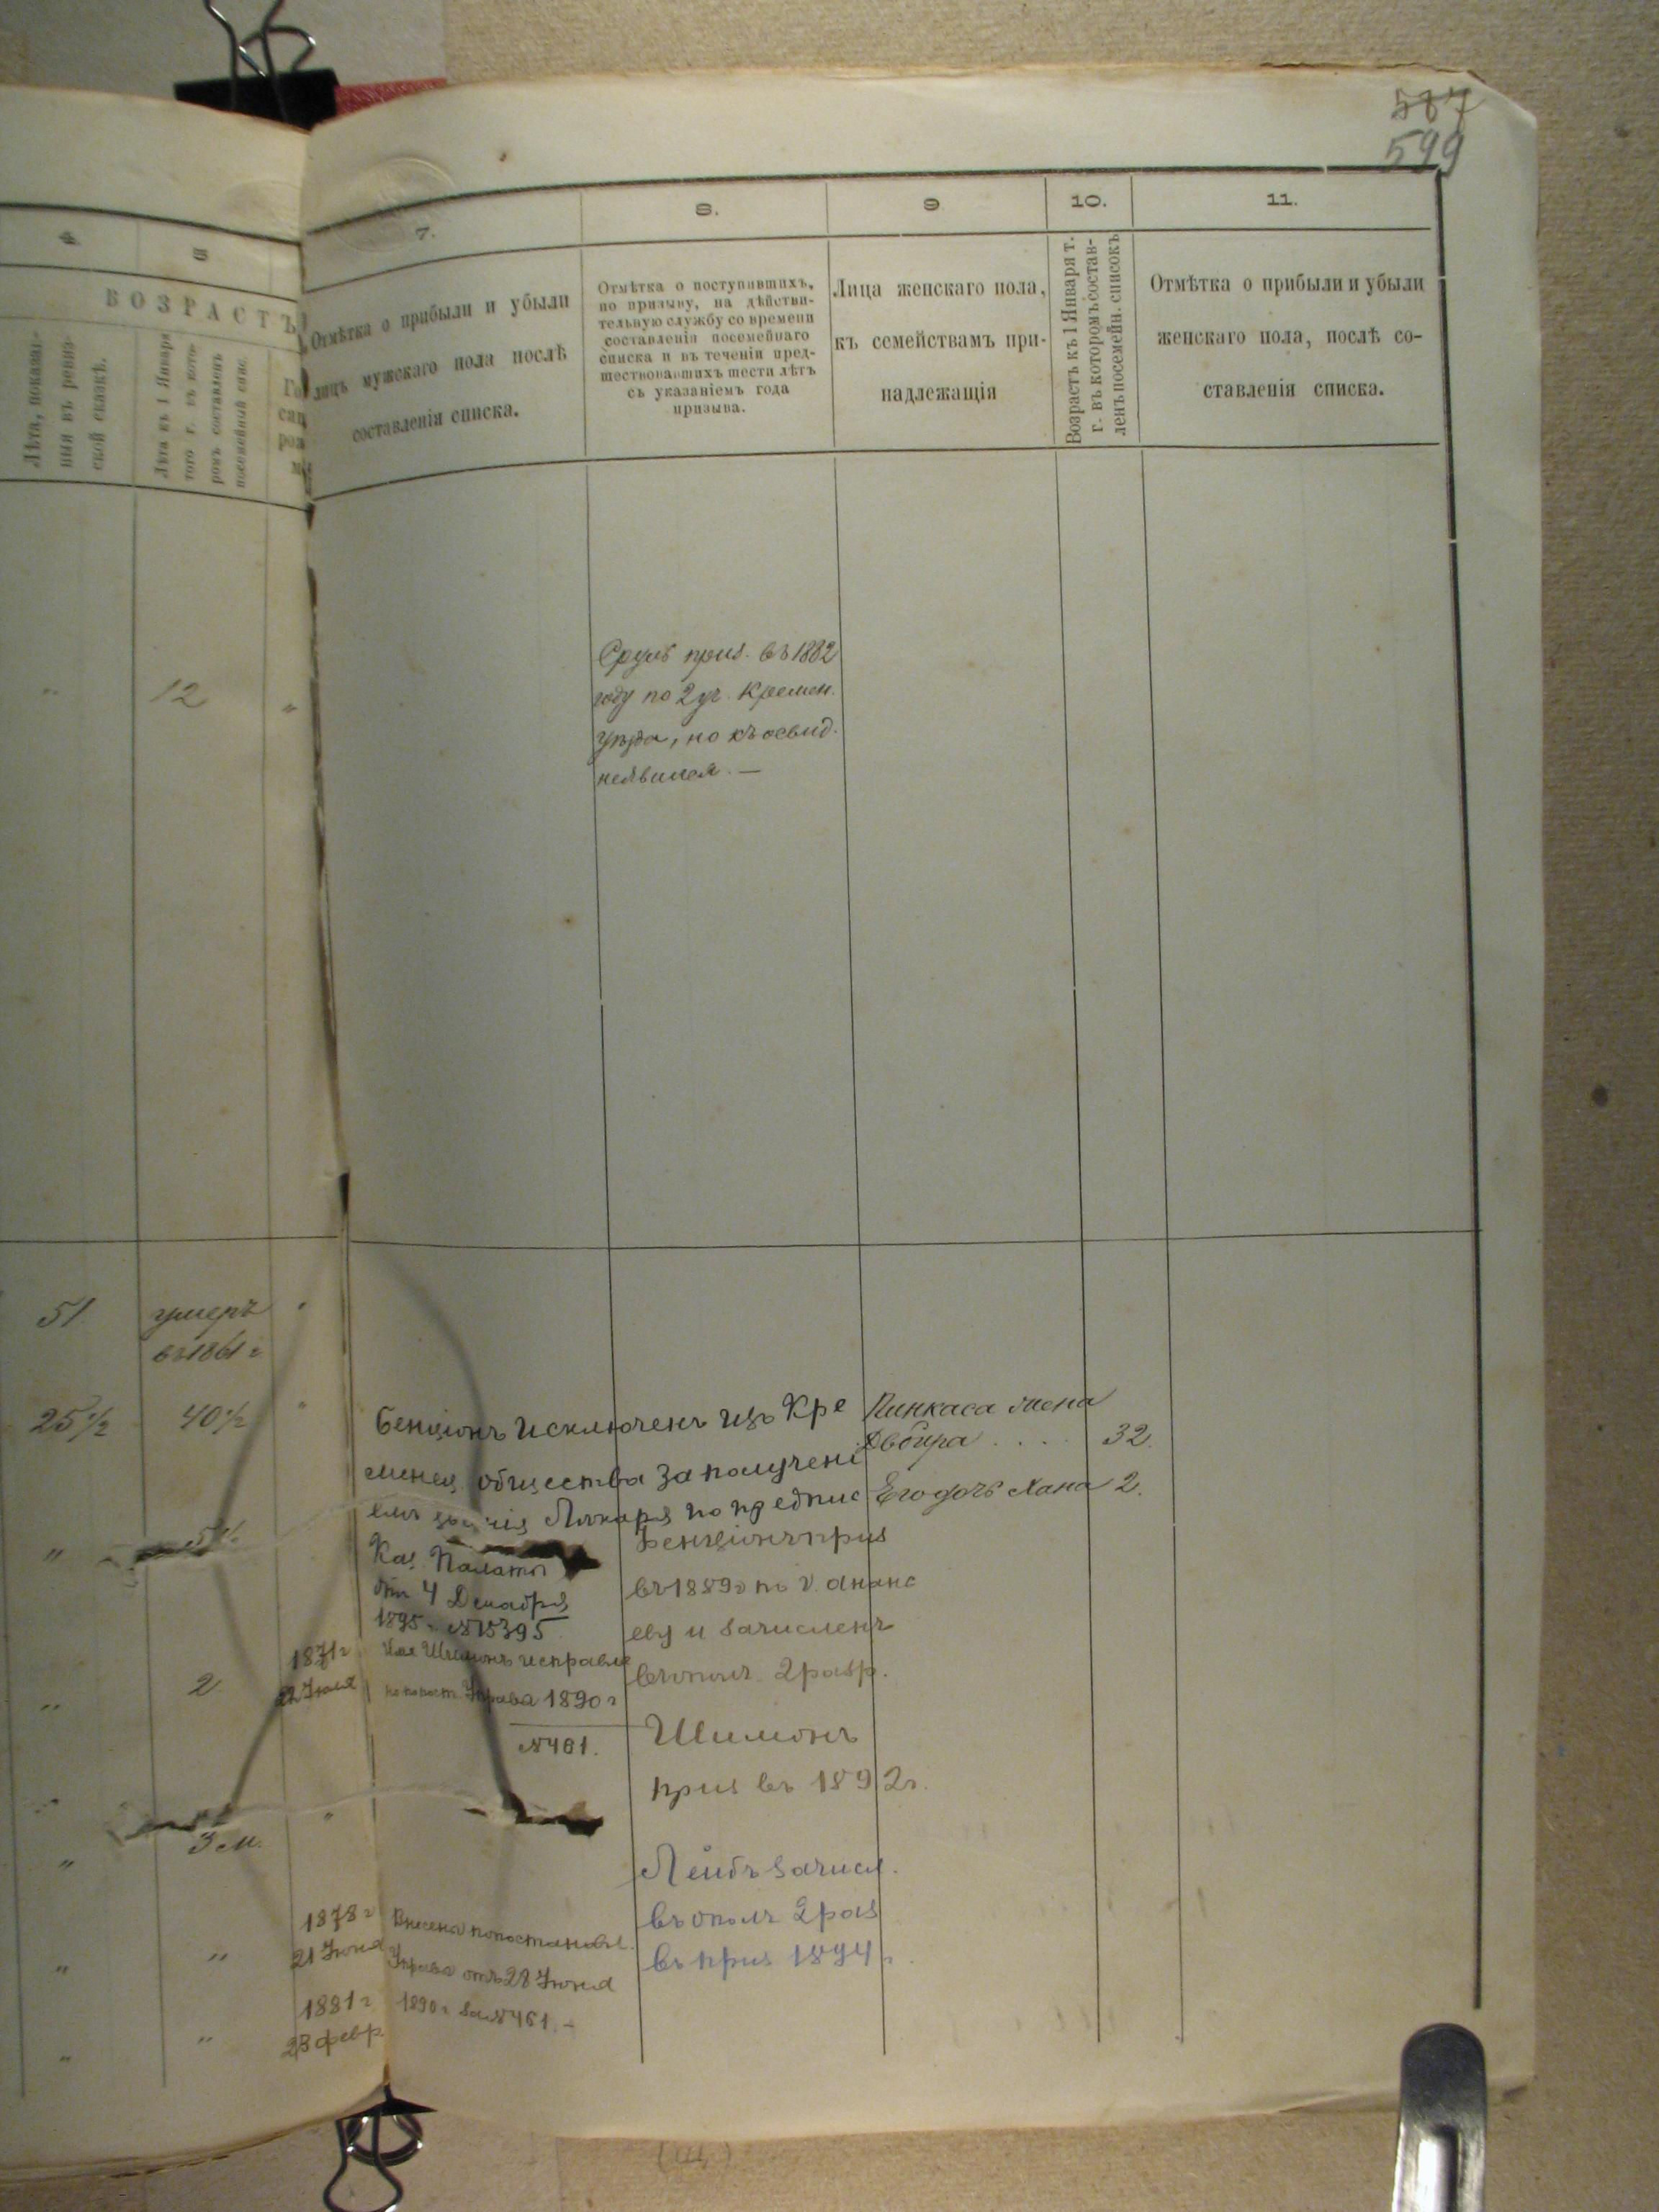 587
599
4
5
7.
8.
9
10.
11.
ВОЗРАСТЪ
Лѣта, показан-
ныя въ ревиз-
ской сказкѣ.
Лѣта къ 1 Января
того г. въ кото-
ромъ составленъ
посемейный спис.
Отмѣтка о прибыли и убыли
лицъ мужскаго пола послѣ
составленія списка.
Отмѣтка о поступившихъ,
по призыву, на дѣйстви-
тельную службу со времени
составленія посемейнаго
списка и въ теченіи пред-
шествовавшихъ шести лѣтъ
съ указаніемъ года
призыва.
Лица женскаго пола,
къ семействамъ при-
надлежащія
Возрастъ къ 1 Января т.
г. въ которомъ состав-
ленъ посемейн. списокъ
Отмѣтка о прибыли и убыли
женскаго пола, послѣ со-
ставленія списка.
" 12 "
Сруль приз. въ 1882
году по 2 уч. Кремен.
уѣзда, но къ освид.
неявился. —
51 умеръ
въ 1861 г.
25 1/2 40 1/2 "
Бенціонъ исключенъ изъ Кре
менец общества за получені
емъ званія Лѣкаря по предпис
Каз. Палаты
отъ 4 Декабря
1895 г. №15395
Пинкаса жена
Двойра . . . . 32.
Его дочь Хана 2.
"
Бенціонъ приз
въ 1889 г по г. Анань
еву и зачисленъ
въ опол. 2 разр.
" 2
1871 г
22 Іюля
Имя Шимонъ исправле
по пост. Управы 1890 г
№461.
Шимонъ
приз въ 1892 г.
" 3 м. "
Лейбъ зачисл.
въ ополч 2 раз
въ приз 1894 г.
" "
1878 г
21 Іюня
Внесены по постановл.
Управы отъ 28 Іюня
1890 г за №461. —
" "
1881 г
23 февр.